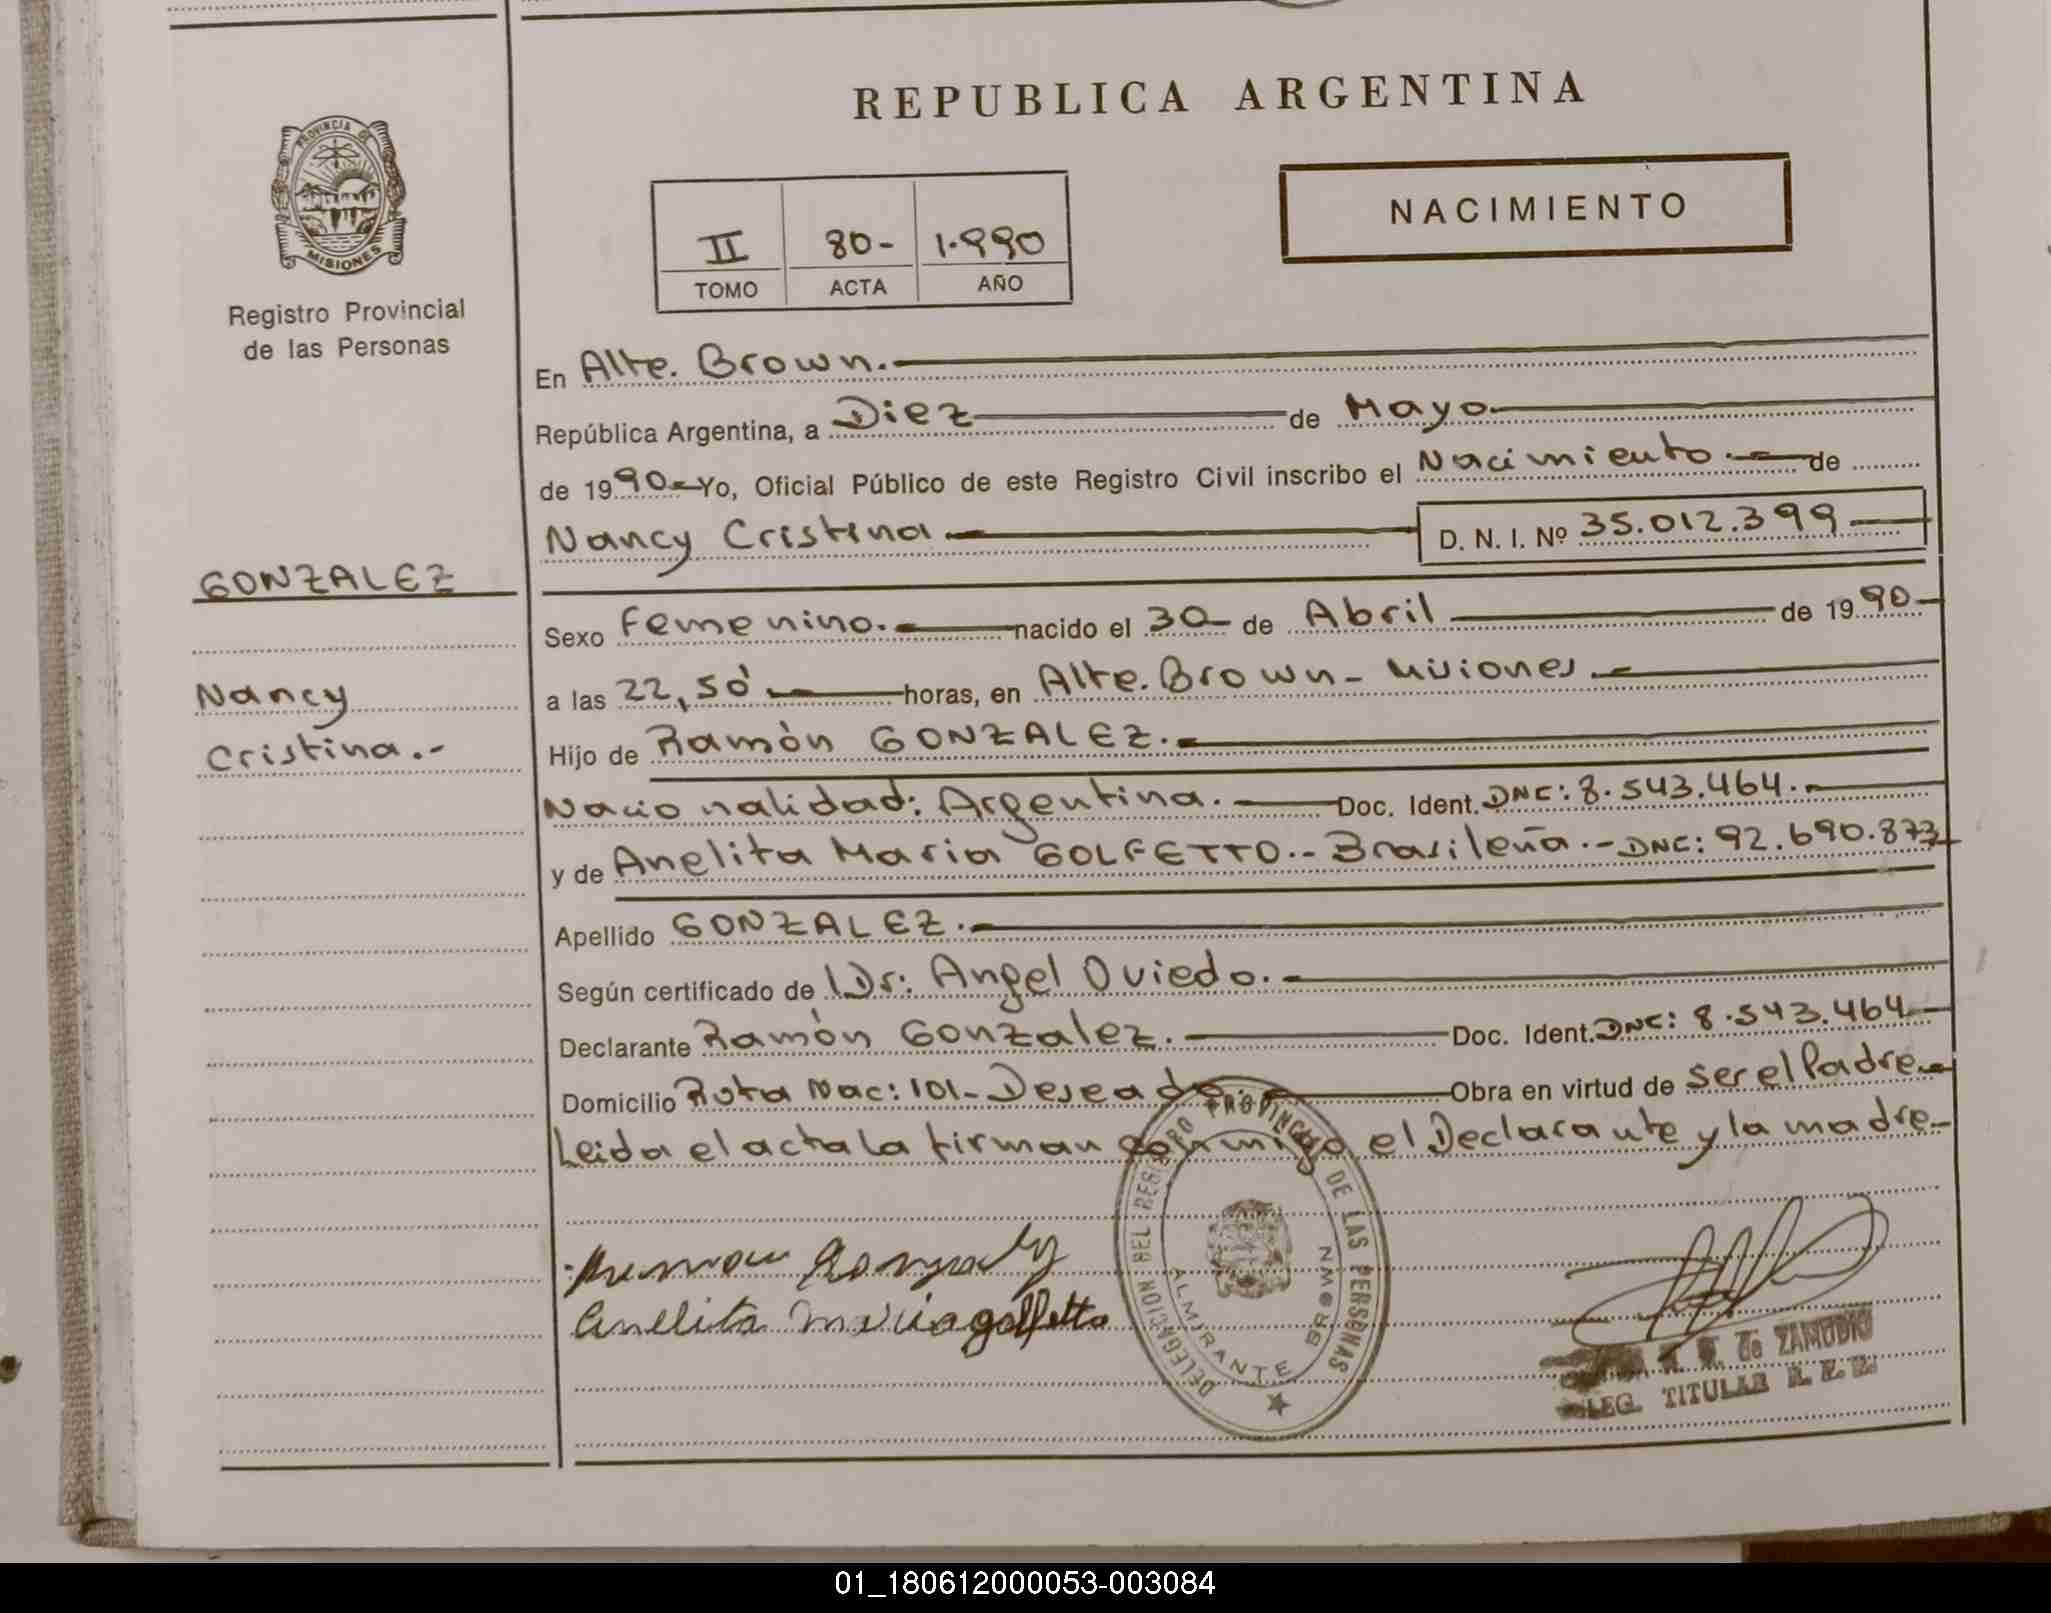 REPUBLICA ARGENTINA
PROVINCIA DE
MISIONES
Registro Provincial
de las Personas
II 80- 1.990
TOMO ACTA AÑO
NACIMIENTO
En Alte. Brown.
República Argentina, a Diez de Mayo
de 1990 Yo, Oficial Público de este Registro Civil inscribo el Nacimiento de
Nancy Cristina D. N. I. Nº 35.012.399
GONZALEZ
Nancy
Cristina.-
Sexo Femenino. nacido el 30 de Abril de 1990
a las 22,50 horas, en Alte. Brown - Misiones
Hijo de Ramón GONZALEZ.
Nacionalidad: Argentina. Doc. Ident. DNC: 8.543.464.
y de Anelita Maria GOLFETTO.- Brasileña.- DNC: 92.690.873
Apellido GONZALEZ.
Según certificado de Dr: Angel Oviedo.
Declarante Ramón Gonzalez. Doc. Ident. DNC: 8.543.464
Domicilio Ruta Nac: 101- Deseado. Obra en virtud de ser el Padre
Leida el acta la firman conmigo el Declarante y la madre
DELEGACION DEL REGISTRO PROVINCIAL DE LAS PERSONAS
ALMIRANTE BROWN
Gonzalez
Anelita Maria golfetto
de ZAMUDIO
LEG. TITULAR R.P.P.
01_180612000053-003084